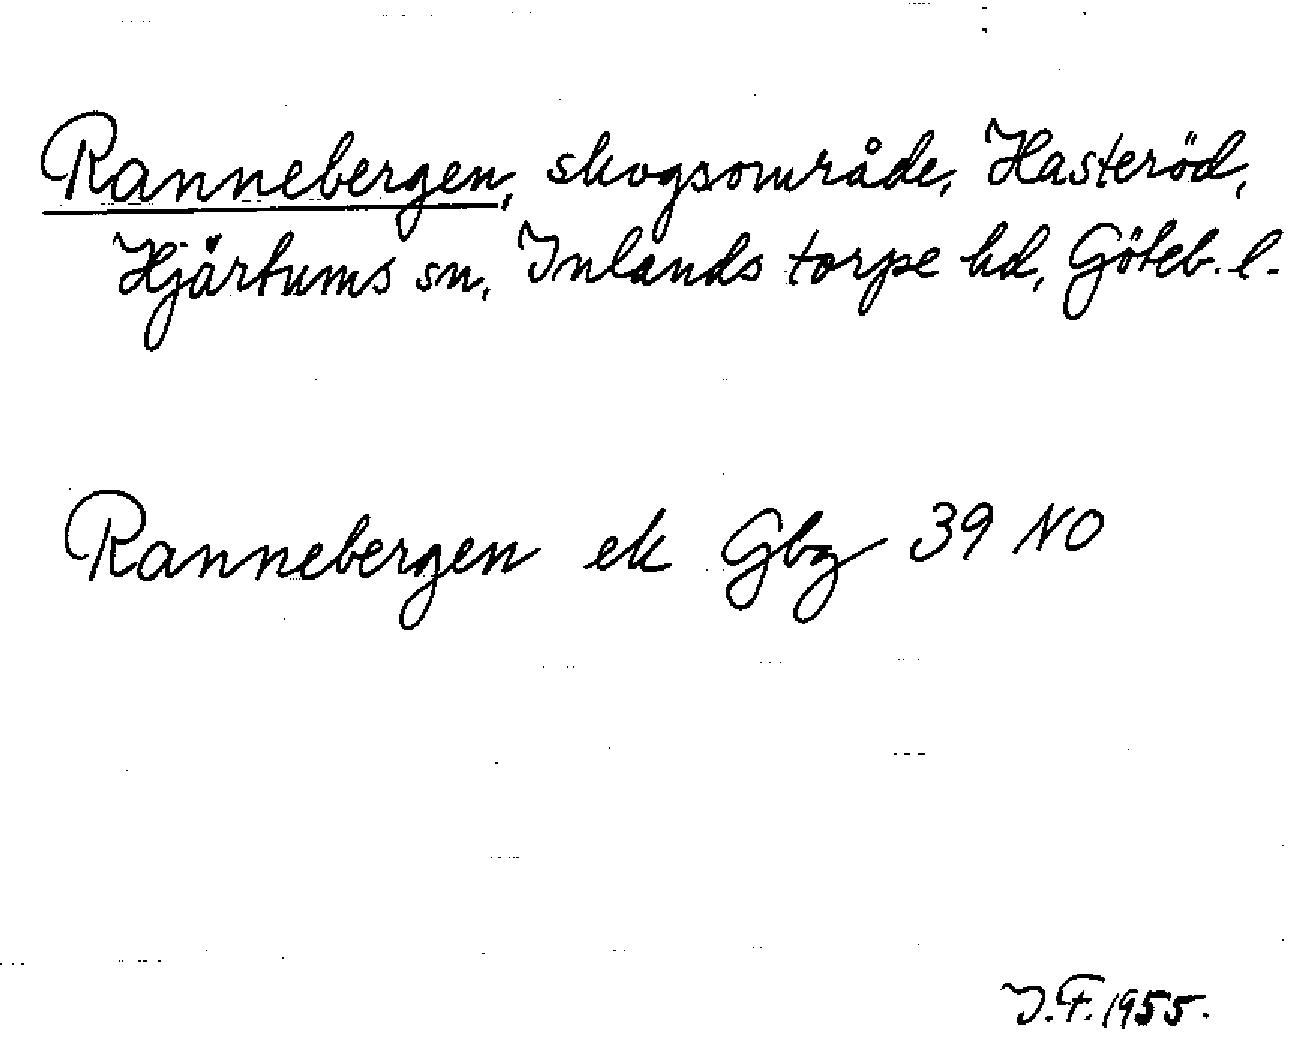 Rannebergen, skogsområde, Hasteröd,
Hjärtums sn, Inlands torpe hd, Göteb. l.
Rannebergen ek Gbg 39 NO
I.F. 1955.